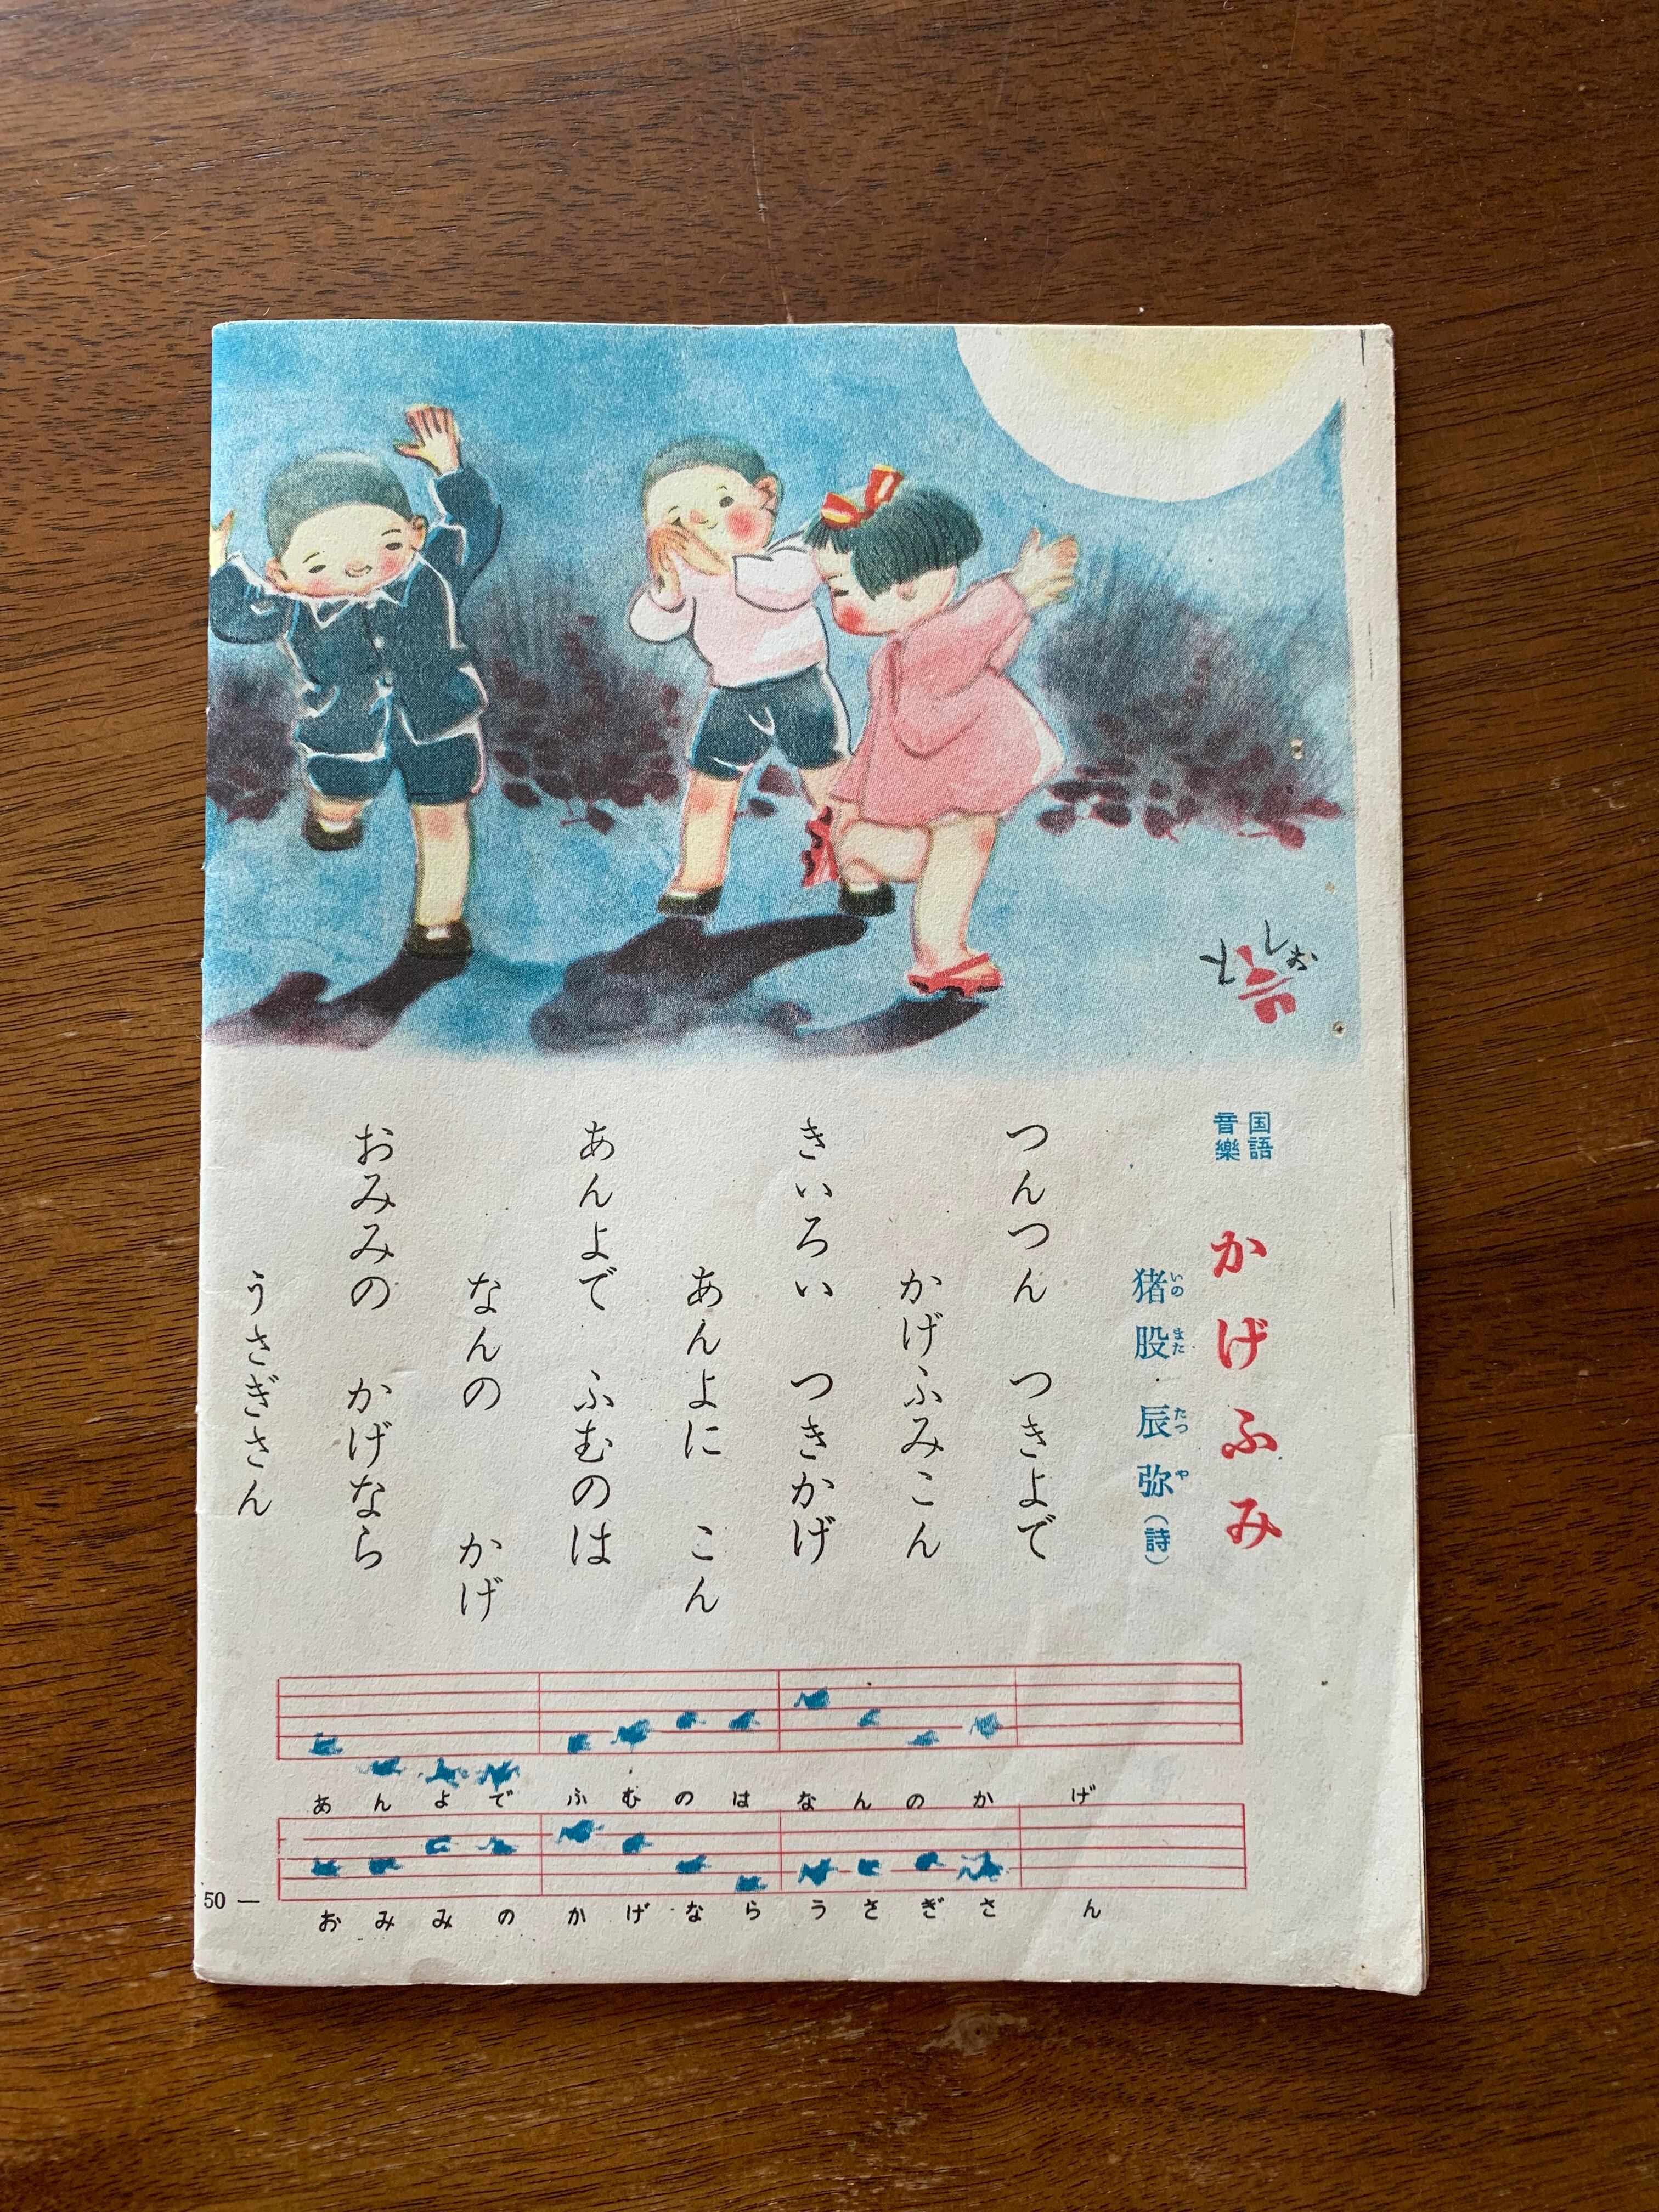 国語
音樂
かげふみ
猪股辰弥(詩)
いのまたたつや
つんつん つきよで
かげふみこん
きいろい つきかげ
あんよに こん
あんよで ふむのは
なんの かげ
おみみの かげなら
うさぎさん
あんよで ふむのは なんのか げ
おみみの かげなら うさぎさ ん
50 —